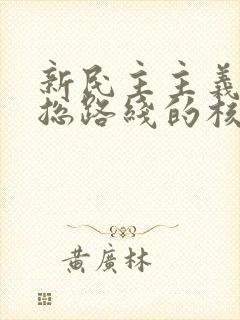 新民主主義
总路綫的核
黃廣林